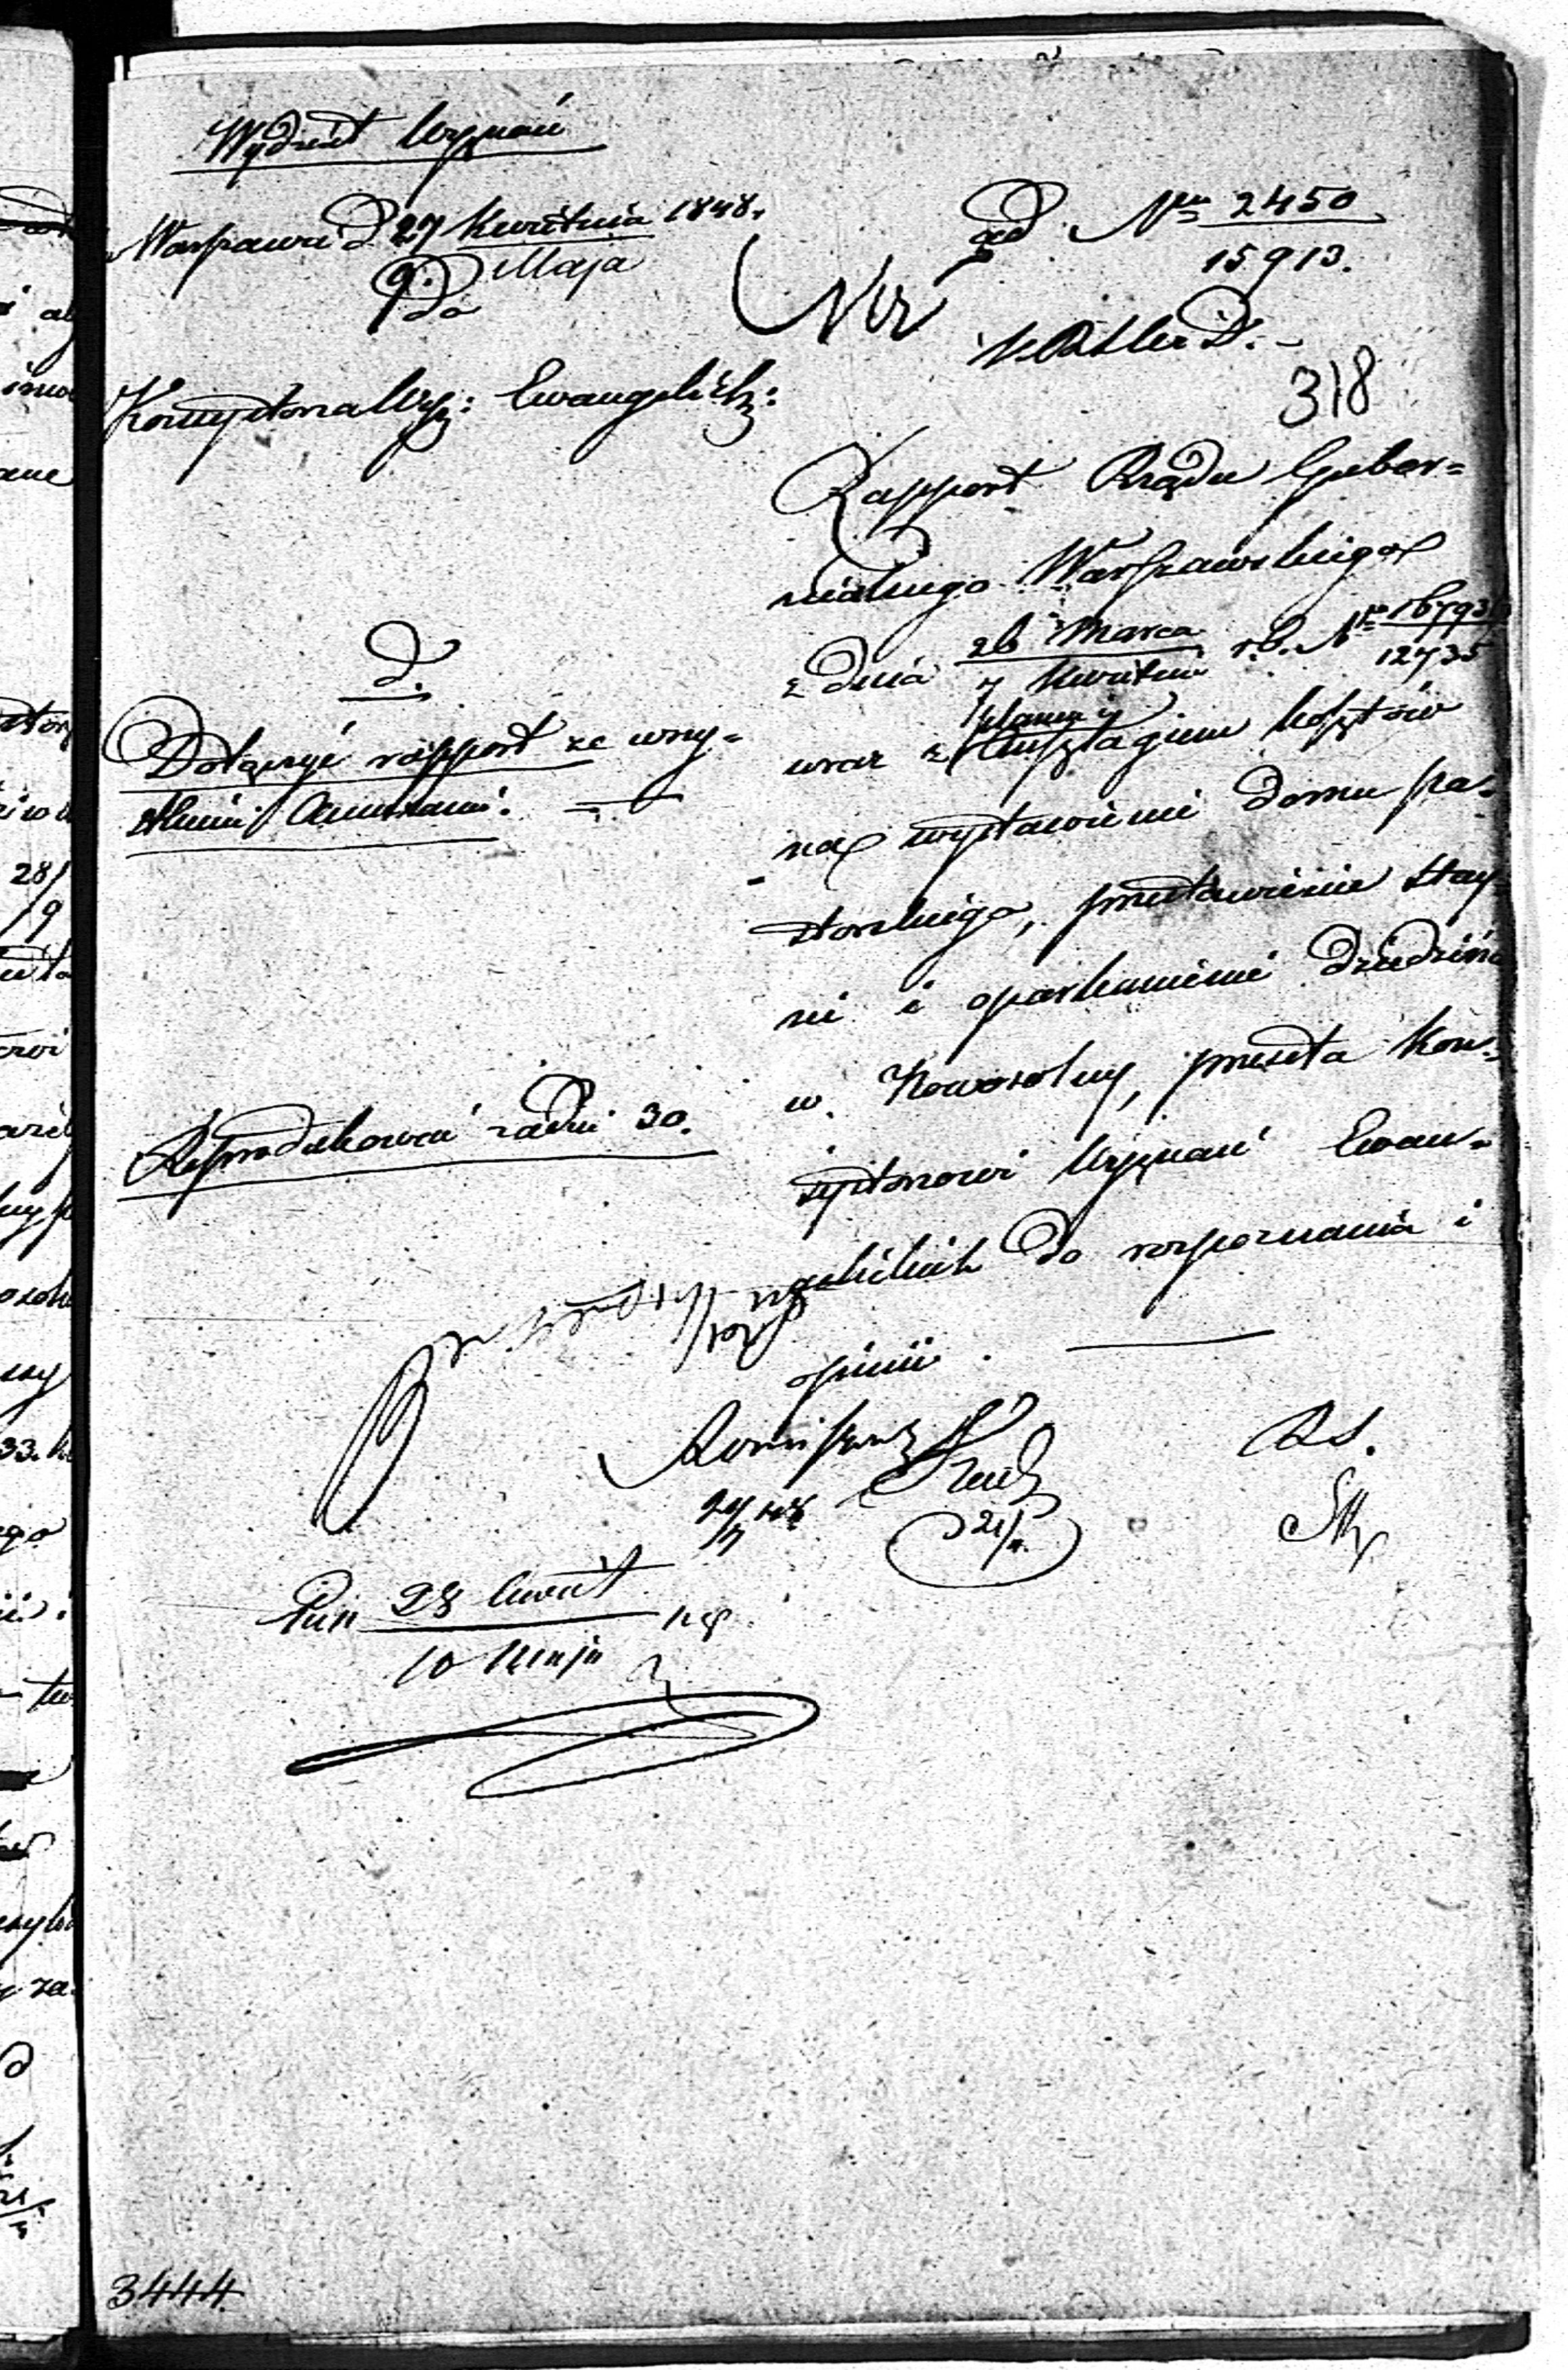 Wydział Wyznań
Warszawa d. 27 Kwietnia 1848.
9. Maja
do
Konsystorza Wyz: Ewangelickz:
ad Nru 2450
15913.
318
Rapport Rządu Guber=
nialnego Warszawskiego
z dnia 26 Marca r. b. Nr 16793
7 Kwietnia 12735
planem i
wraz z Anszlagiem kosztów
na wystawienie domu pa=
storskiego, przestawienie stay
ni i oparkanienie dziedzińca
w Nowosolny, przesyła Kon=
systorzowi Wyznań Ewan=
gelickich do rozpoznania i
opinii.
d.
Dołączyć rapport ze wszy=
stkiemi Annexami.
Reprodukować za dni 30.
21/4.
28 Kwiet
10 Maja
3444